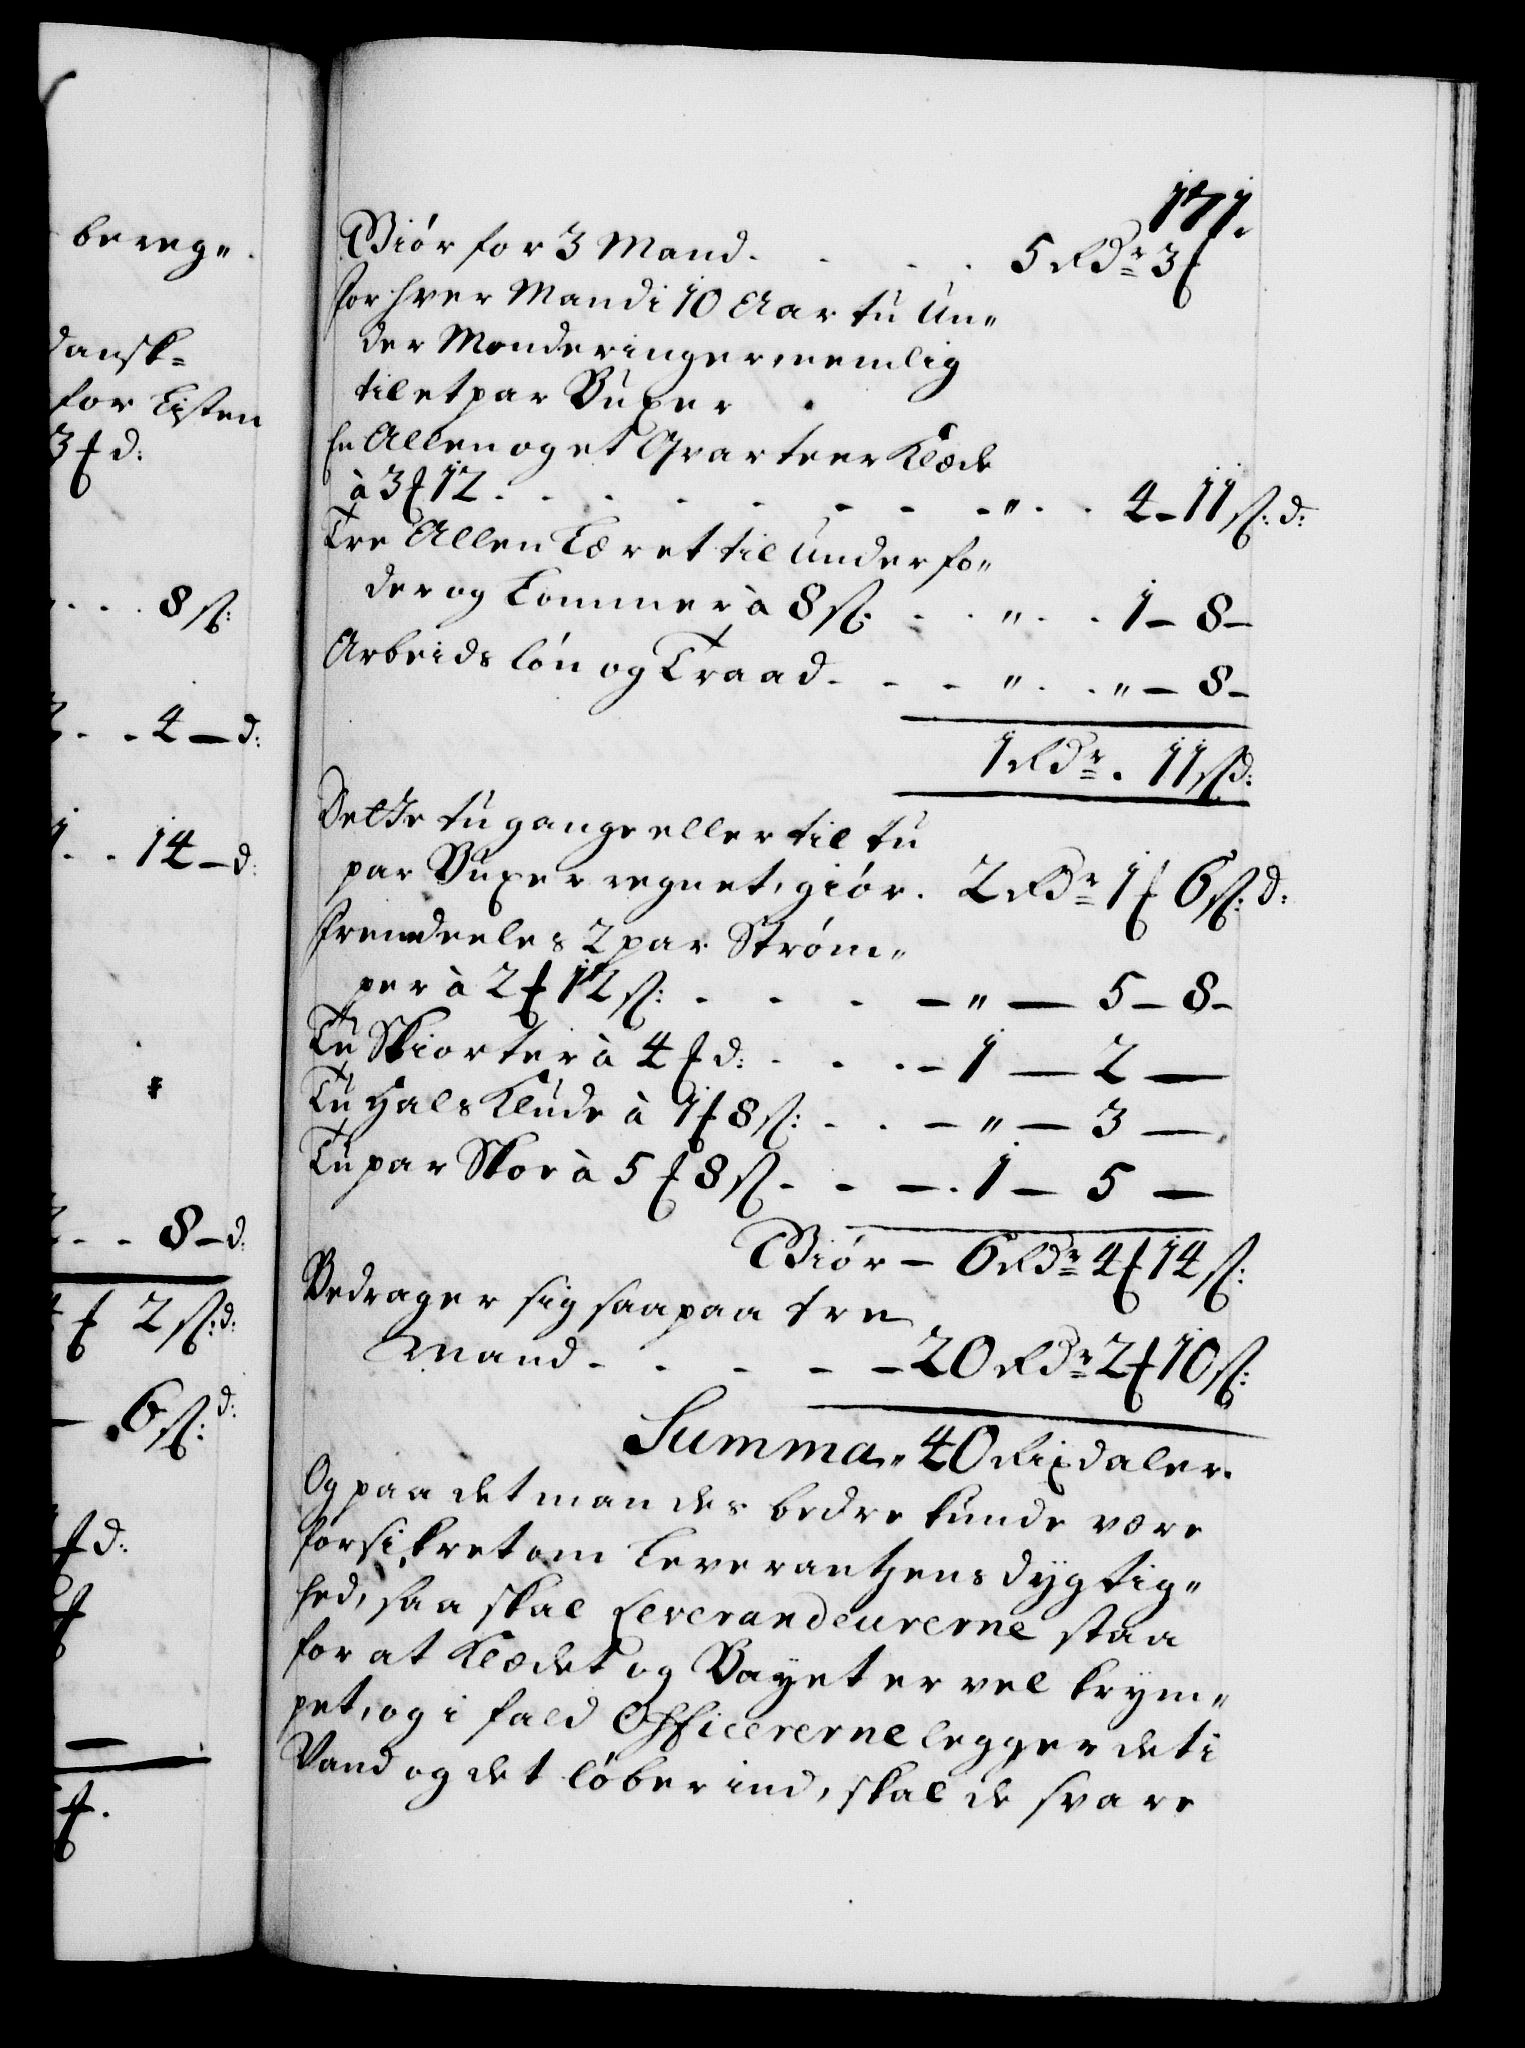 bereg„
dansk=
for Listen
3 ℔ d:
8 ſk:
4 — d:
14 — d:
8 — d:
2 ſk: d:
6 ſk: d:
171.
Giör for 3 Mand. . . . . 5 Rdr 3 ℔
for hver Mand i 10 Aar tu Un„
der Monderinger, nemlig
til et par Buxer
En Allen og et Qvarteer Klæde
à 3 ℔ 12 . . . . . . . „ . . 4 – 11 ſk: d:
Tre Allen Læret til Underfo„
der og Lommer à 8 ſk . . „ . . 1 – 8 –
Arbeidslön og Traad . . . „ . . „ – 8 –
1 Rdr . 11 ſk d:
Dette tu gange eller til tu
par Buxer regnet, giör . 2 Rdr 1 ℔ 6 ſk: d:
fremdeeles 2 par Ström„
per à 2 ℔ 12 ſk: . . . – „ – 5 – 8 –
Tu Skiorter à 4 ℔ d: . . . – 1 – 2 –
Tu Hals Klude à 1 ℔ 8 ſk: . . – „ – 3 –
Tu par Skoe à 5 ℔ 8 ſk . . – . 1 – 5 –
Giör – 6 Rdr 4 ℔ 14 ſk:
Bedrager sig saa paa tre
Mand . . . . – 20 Rdr 2 ℔ 10 ſk:
Summa „ 40 Rixdaler.
Og paa det man des bedre kunde være
forsikret om Leverantzens dygtig„
hed, saa skal Leverandeurerne staa
for at Klædet og Bayet er vel krym„
pet, og i fald Officererne legger det i
Vand og det löber ind, skal de svare